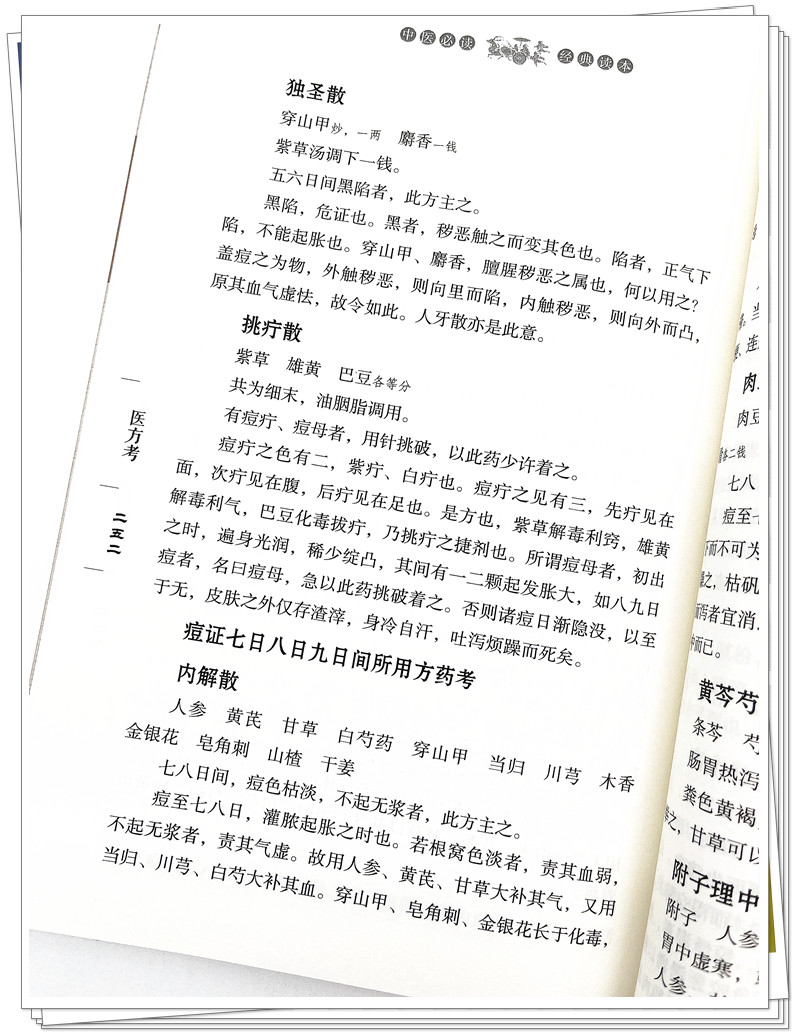 中医必读 经典读本
独圣散
穿山甲炒，一两 麝香一钱
紫草汤调下一钱。
五六日间黑陷者，此方主之。
黑陷，危证也。黑者，秽恶触之而变其色也。陷者，正气下
陷，不能起胀也。穿山甲、麝香，膻腥秽恶之属也，何以用之？
盖痘之为物，外触秽恶，则向里而陷，内触秽恶，则向外而凸，
原其血气虚怯，故令如此。人牙散亦是此意。
挑疔散
紫草 雄黄 巴豆各等分
共为细末，油胭脂调用。
有痘疔、痘母者，用针挑破，以此药少许着之。
痘疔之色有二，紫疔、白疔也。痘疔之见有三，先疔见在
面，次疔见在腹，后疔见在足也。是方也，紫草解毒利窍，雄黄
解毒利气，巴豆化毒拔疔，乃挑疔之捷剂也。所谓痘母者，初出
之时，遍身光润，稀少绽凸，其间有一二颗起发胀大，如八九日
痘者，名曰痘母，急以此药挑破着之。否则诸痘日渐隐没，以至
于无，皮肤之外仅存渣滓，身冷自汗，吐泻烦躁而死矣。
痘证七日八日九日间所用方药考
内解散
人参 黄芪 甘草 白芍药 穿山甲 当归 川芎 木香
金银花 皂角刺 山楂 干姜
七八日间，痘色枯淡，不起无浆者，此方主之。
痘至七八日，灌脓起胀之时也。若根窝色淡者，责其血弱，
不起无浆者，责其气虚。故用人参、黄芪、甘草大补其气，又用
当归、川芎、白芍大补其血。穿山甲、皂角刺、金银花长于化毒，
医方考
二五二
当
连
肉
肉豆
各二钱
七八
痘至七
而不可为
之，枯矾
两者宜消
而已。
黄芩芍
条芩 芍
肠胃热泻
粪色黄褐
之，甘草可以
附子理中
附子 人参
胃中虚寒，
人参、